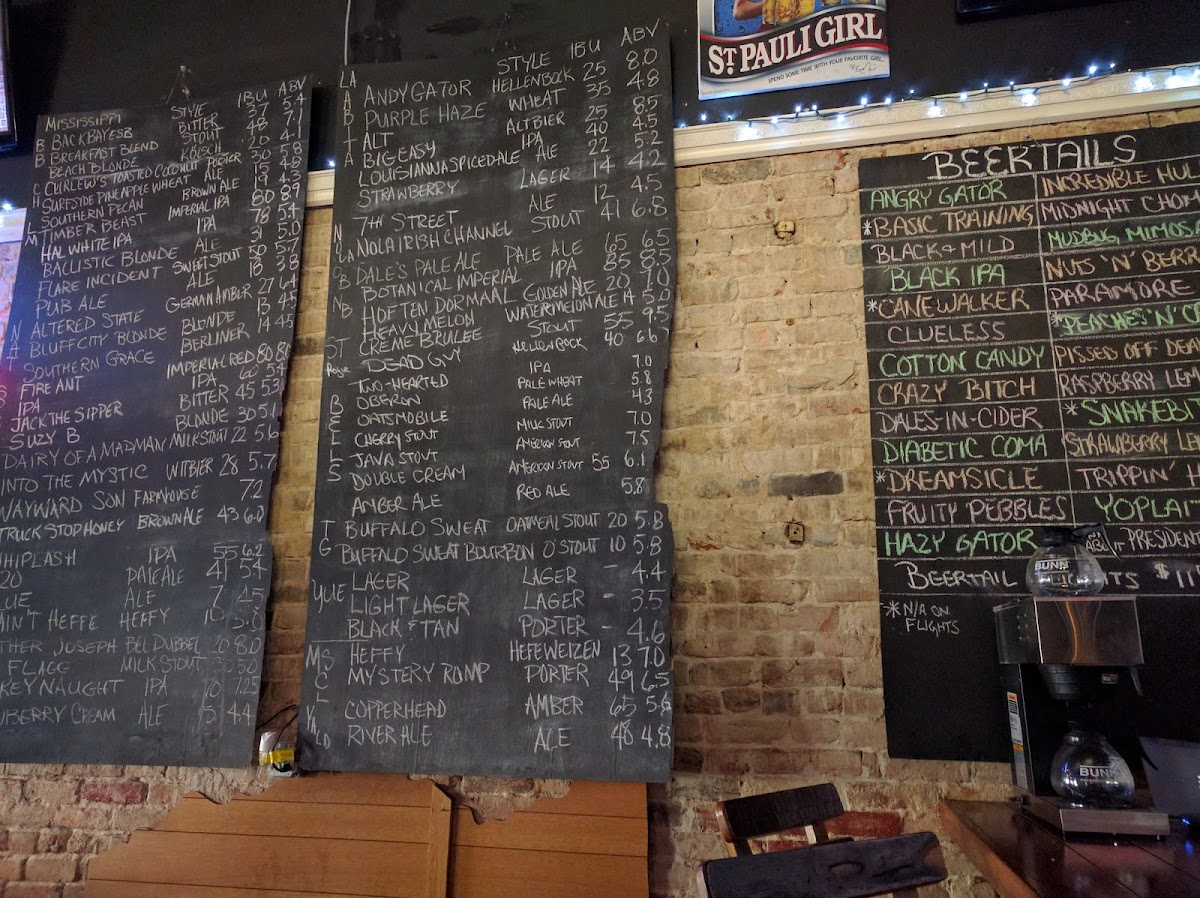 MISSISSIPPI STYLE IBU ABV
BACK BAY ESB BITTER 37 5.4
BREAKFAST BLEND STOUT 48 7.1
BEACH BLONDE KÖLSCH 20 4.1
CURLEW'S TOASTED COCONUT PORTER 30 5.8
SURFSIDE PINEAPPLE WHEAT ALE
SOUTHERN PECAN BROWN ALE 19 4.3
TIMBER BEAST IMPERIAL IPA 80 8.9
HAL WHITE IPA IPA
BALLISTIC BLONDE ALE 31 5.0
FLARE INCIDENT SWEET STOUT
PUB ALE
ALTERED STATE GERMAN AMBER 27
BLUFF CITY BLONDE BLONDE
SOUTHERN GRACE BERLINER 14 4.5
FIRE ANT IMPERIAL RED 80 8.0
IPA IPA 60 5.9
JACK THE SIPPER BITTER 45 5.3
SUZY B BLONDE 30 5.
DAIRY OF A MADMAN MILK STOUT 22 5.6
INTO THE MYSTIC WITBIER 28 5.7
WAYWARD SON FARMHOUSE 7.2
TRUCK STOP HONEY BROWN ALE 43 6.0
WHIPLASH IPA 55 6.2
20 PALE ALE 41 5.4
LUE ALE 7 4.5
AIN'T HEFFE HEFFY 10 5.0
THER JOSEPH BEL DUBBEL 20 8.0
FLAGG MILK STOUT 5.0
KEY NAUGHT IPA 70 7.25
UBERRY CREAM ALE 15 4.4
STYLE IBU ABV
LA ANDYGATOR HELLENBOCK 25 8.0
A PURPLE HAZE WHEAT 35 4.8
B ALT ALTBIER 25 8.5
I BIG EASY IPA 40 4.5
T LOUISIANNA SPICED-ALE ALE 22 5.2
A STRAWBERRY LAGER 14 4.2
7TH STREET ALE 12 4.5
NOLA IRISH CHANNEL STOUT 41 6.8
DALE'S PALE ALE PALE ALE 65 6.5
BOTANICAL IMPERIAL IPA 85 8.5
HOF TEN DORMAAL GOLDEN ALE 20 7.0
HEAVY MELON WATERMELON ALE 14 5.0
ST CREME BRULEE STOUT 55 9.5
Rogue DEAD GUY HELLENBOCK 40 6.6
TWO-HEARTED IPA 7.0
B OBERON PALE WHEAT 5.8
E OATSMOBILE PALE ALE 4.3
L CHERRY STOUT MILK STOUT 7.0
L JAVA STOUT AMERICAN STOUT 7.5
S DOUBLE CREAM AMERICAN STOUT 55 6.1
AMBER ALE RED ALE 5.8
T BUFFALO SWEAT OATMEAL STOUT 20 5.8
G BUFFALO SWEAT BOURBON O'STOUT 10 5.8
YUE LAGER LAGER - 4.4
LIGHT LAGER LAGER - 3.5
BLACK & TAN PORTER - 4.6
HEFFY HEFEWEIZEN 13 7.0
MYSTERY ROMP PORTER 49 6.5
COPPERHEAD AMBER 65 5.6
RIVER ALE ALE 48 4.8
ST. PAULI GIRL
SPEND SOME TIME WITH YOUR FAVORITE GIRL.
BEERTAILS
ANGRY GATOR INCREDIBLE HUL
*BASIC TRAINING MIDNIGHT CHO
BLACK & MILD MUDBUG MIMOSA
BLACK IPA NUTS 'N' BERR
*CANEWALKER PARAMORE
CLUELESS *PEACHES 'N' C
COTTON CANDY PISSED OFF DEA
CRAZY BITCH RASPBERRY LEM
DALES-IN-CIDER *SNAKEBI
DIABETIC COMA *STRAWBERRY LE
*DREAMSICLE TRIPPIN' H
FRUITY PEBBLES YOPLAI
HAZY GATOR PRESIDENT
BEERTAIL TS $11
*N/A ON
FLIGHTS
BUNN
BUNN